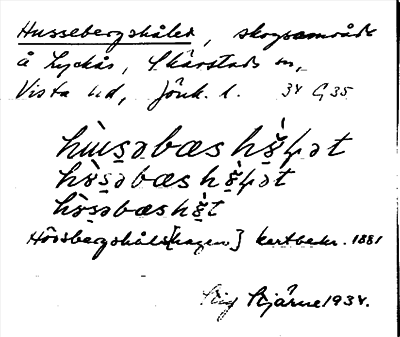 Hussebergshålet, skogsområde
å Lyckås, Skärstads sn,
Vista hd, Jönk. l. 34 G 35
hùu̶s̠əbæs hɞ̠̀ɬət
hɞ̀s̠əbæs hɞ̠̀ɬət
hɞ̀s̠əbæs hɞ̠̀t
Hössbergshåls[hagen] kartbeskr. 1881
Stig Stjärne 1934.